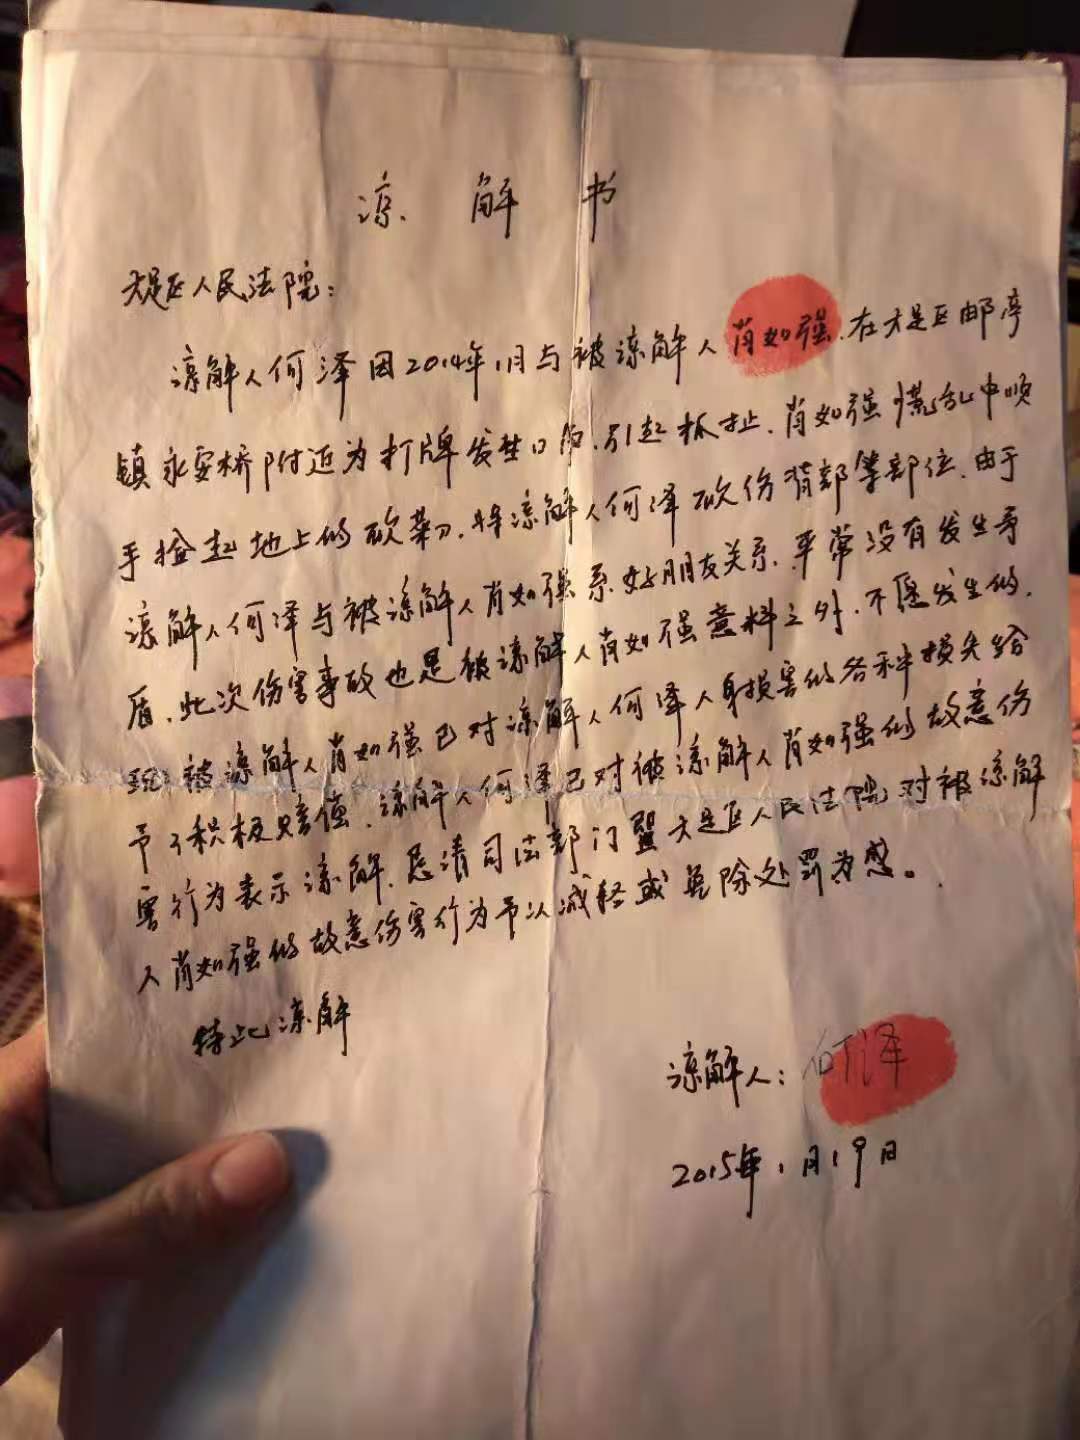 谅解书
大足区人民法院:
谅解人何泽因2014年1月与被谅解人肖如强.在大足区邮亭
镇永安桥附近为打牌发生口角.引起抓扯.肖如强慌乱中顺
手捡起地上的砍菜刀.将谅解人何泽砍伤背部等部位.由于
谅解人何泽与被谅解人肖如强系好朋友关系.平常没有发生矛
盾.此次伤害事故也是被谅解人肖如强意料之外.不愿发生的.
现被谅解人肖如强已对谅解人何泽人身损害的各种损失给
予了积极赔偿.谅解人何泽已对被谅解人肖如强的故意伤
害行为表示谅解.恳请司法部门暨大足区人民法院对被谅解
人肖如强的故意伤害行为予以减轻或免除处罚为感。
特此谅解
谅解人:何泽
2015年1月19日